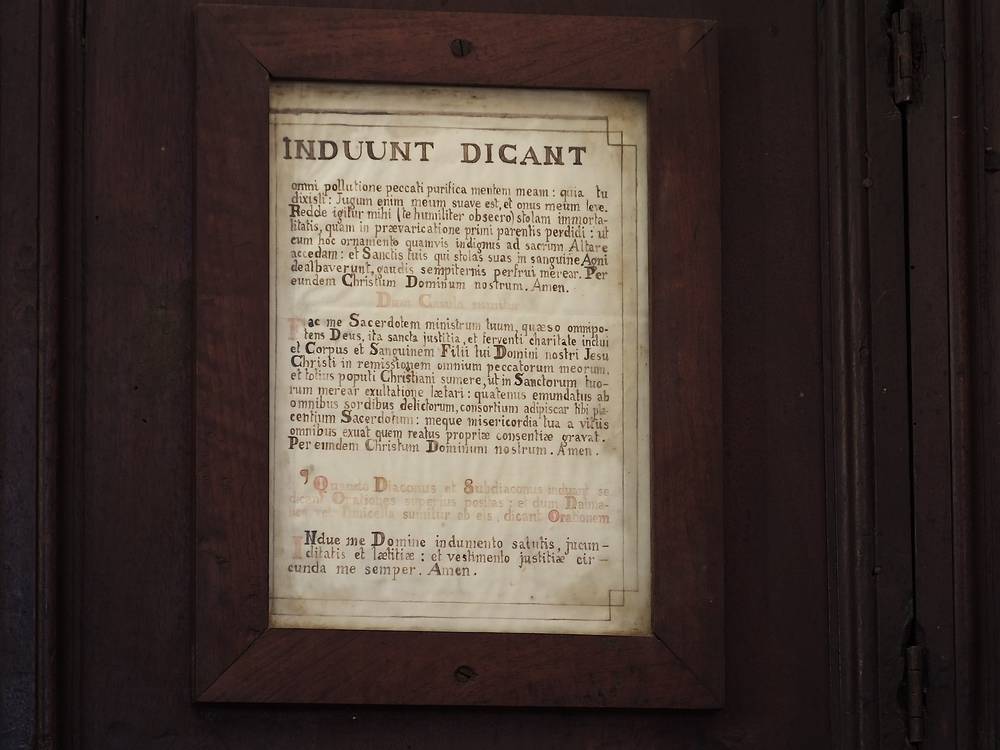 INDUUNT DICANT
omni pollutione peccati purifica mentem meam : quia tu
dixisti : Jugum enim meum suave est, et onus meum leve.
Redde igitur mihi (te humiliter obsecro) stolam immorta-
litatis, quam in prævaricatione primi parentis perdidi : ut
cum hoc ornamento quamvis indignus ad sacrum Altare
accedam : et Sanctis tuis qui stolas suas in sanguine Agni
dealbaverunt, gaudis sempiternis perfrui merear. Per
eundem Christum Dominum nostrum. Amen.
Dum Casula sumitur
Fac me Sacerdotem ministrum tuum, quæso omnipo-
tens Deus, ita sancta justitia, et ferventi charitate indui
et Corpus et Sanguinem Filii tui Domini nostri Jesu
Christi in remissionem omnium peccatorum meorum,
et totius populi Christiani sumere, ut in Sanctorum tuo-
rum merear exultatione lætari : quatenus emundatus ab
omnibus sordibus delictorum, consortium adipiscar tibi pla-
centium Sacerdotum : meque misericordia tua a vitiis
omnibus exuat quem reatus propriæ consentiæ gravat.
Per eumdem Christum Dominum nostrum. Amen.
Quando Diaconus et Subdiaconus induunt se
dicant Orationes superius positas : et dum Dalma-
tica vel Tunicella sumitur ab eis, dicant Orationem
INdue me Domine indumento salutis, jucun-
ditatis et lætitiæ : et vestimento justitiæ cir-
cunda me semper. Amen.